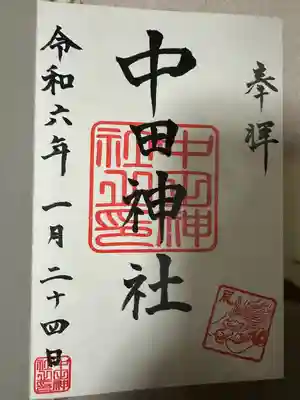 奉拝
中田神社
中田神社之印
辰
令和六年一月二十四日